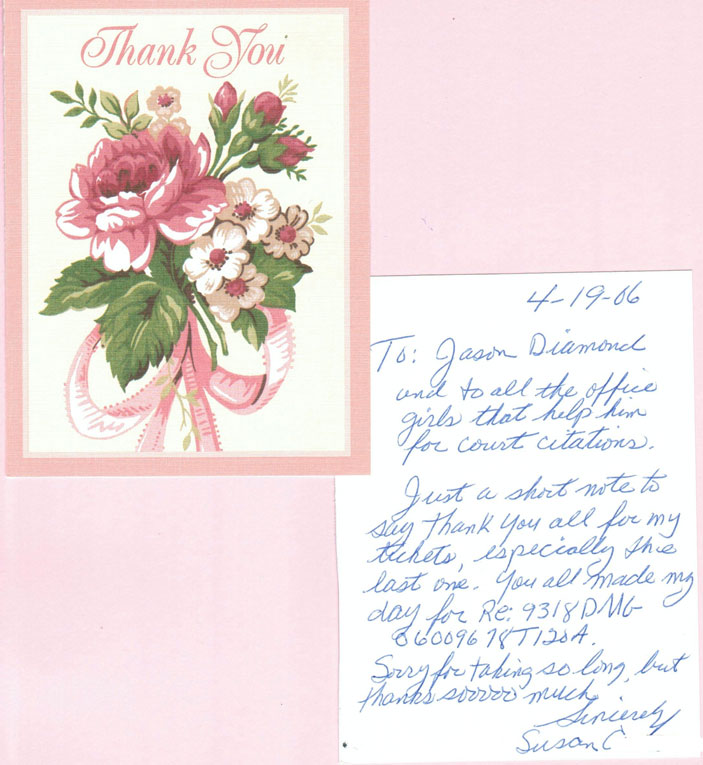 Thank You
4-19-06
To: Jason Diamond
and to all the office
girls that help him
for court citations.
Just a short note to
say thank you all for my
tickets, especially the
last one. You all made my
day for Re: 9318DMG
06009678T120A.
Sorry for taking so long, but
thanks sooooo much
Sincerely
Susan C